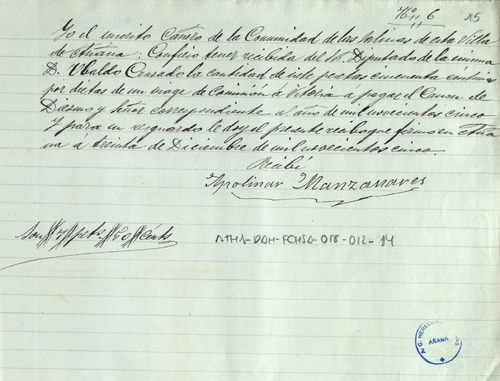 Nº 6
15
Yo el inscrito Casero de la Comunidad de las Salinas de esta Villa
de Añana: Confieso tener recibida del Sr. Diputado de la misma
D. Ubaldo Corcado la cantidad de siete pesetas cincuenta centims
por dietas de un viage de Comisión a Vitoria a pagar el Canon de
Diezmo y Años correspondiente al año de mil novecientos cinco
Y para su resguardo le doy el presente recibo que firmo en Aña
na á treinta de Diciembre de mil novecientos cinco.
Recibí
Apolinar Manzanares
Son 7 pets 50 Cents
ATHA-DAH-FCHSA-018-012-14
AÑANA